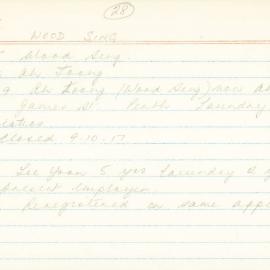 28
WOOD SING
Wood Sing.
Ah Loong
Ah Loong (Wood Sing) now at
James St. Perth Laundry
Closed 9-10-17
Lee Yoon 5 yrs Laundry
present employer.
Reregistered on same